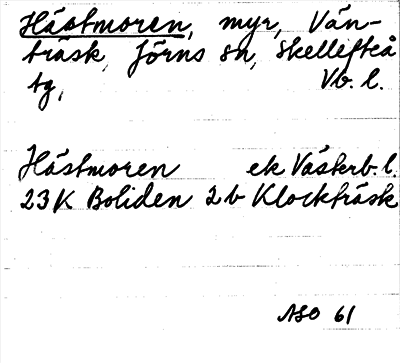 Hästmoren, myr, Vän-
träsk, Jörns sn, Skellefteå
tg, Vb. l.
Hästmoren ek Västerb. l.
23 K Boliden 2 b Klockträsk
ASO 61